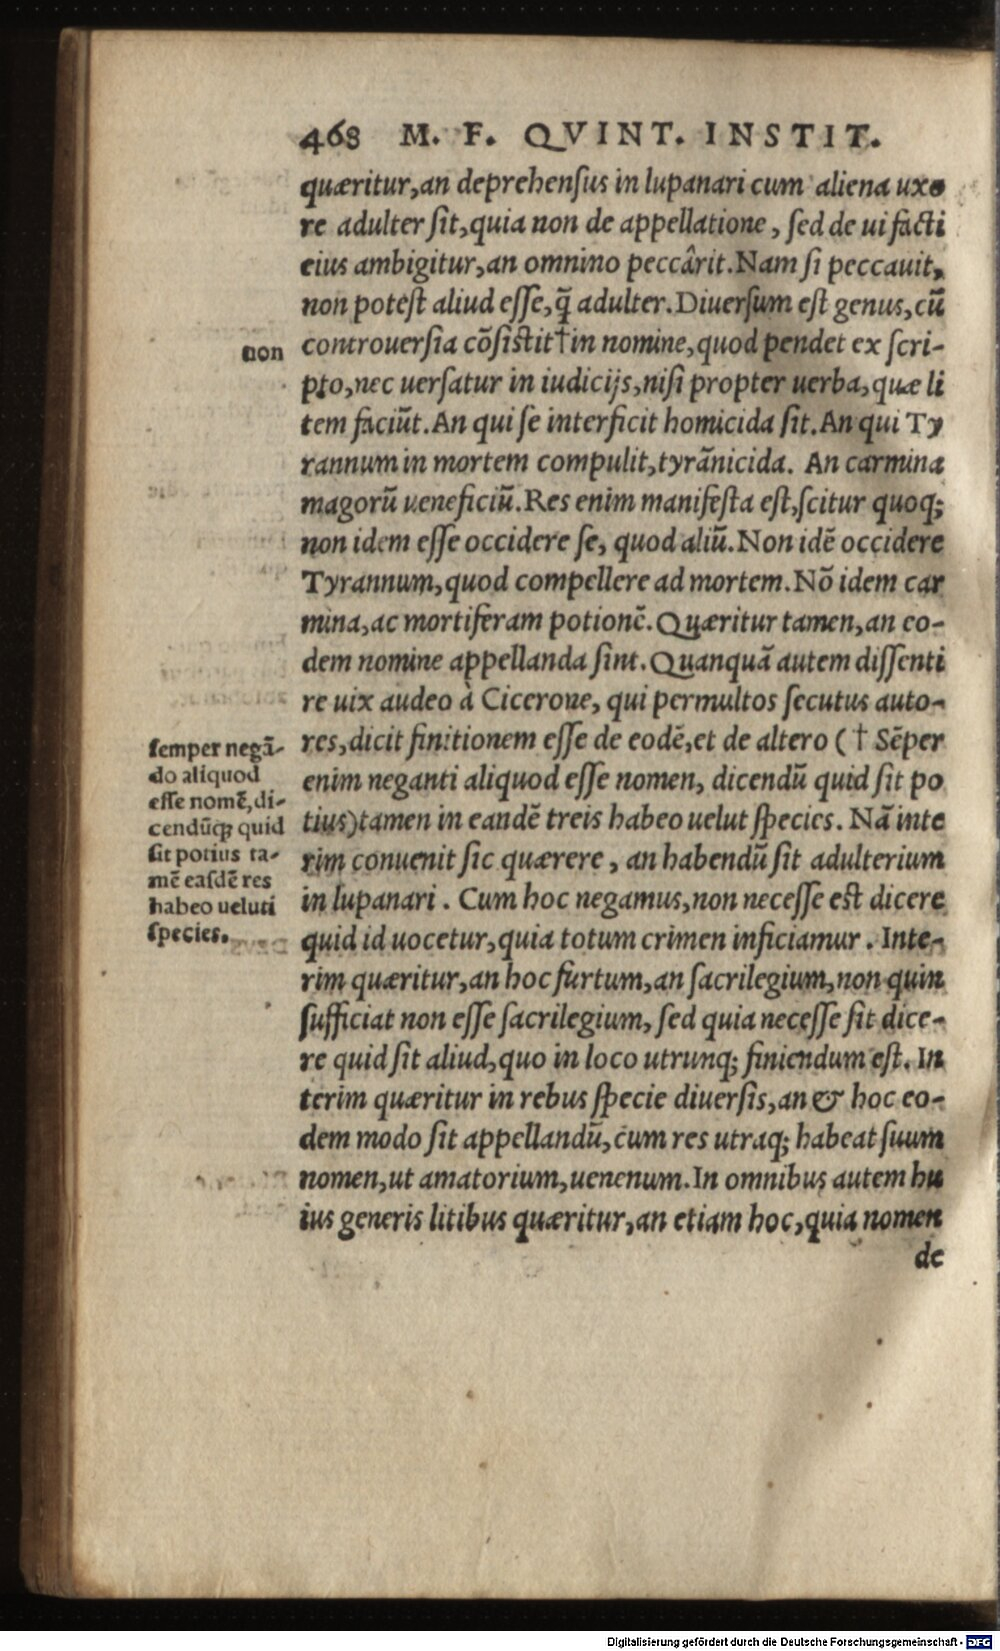 468 M. F. QVINT. INSTIT.
quæritur, an deprehensus in lupanari cum aliena uxo
re adulter sit, quia non de appellatione, sed de ui facti
eius ambigitur, an omnino peccârit. Nam si peccauit,
non potest aliud esse, q̃ adulter. Diuersum est genus, cū
controuersia cōsistit † in nomine, quod pendet ex scri-
pto, nec uersatur in iudicijs, nisi propter uerba, quæ li
tem faciūt. An qui se interficit homicida sit. An qui Ty
rannum in mortem compulit, tyrānicida. An carmina
magorū ueneficiū. Res enim manifesta est, scitur quoq;
non idem esse occidere se, quod aliū. Non idē occidere
Tyrannum, quod compellere ad mortem. Nō idem car
mina, ac mortiferam potionē. Quæritur tamen, an eo-
dem nomine appellanda sint. Quanquā autem dissenti
re uix audeo à Cicerone, qui permultos secutus auto-
res, dicit finitionem esse de eodē, et de altero († Sēper
enim neganti aliquod esse nomen, dicendū quid sit po
tius) tamen in eandē treis habeo uelut species. Nā inte
rim conuenit sic quærere, an habendū sit adulterium
in lupanari. Cum hoc negamus, non necesse est dicere
quid id uocetur, quia totum crimen inficiamur. Inte-
rim quæritur, an hoc furtum, an sacrilegium, non quin
sufficiat non esse sacrilegium, sed quia necesse sit dice-
re quid sit aliud, quo in loco utrunq; finiendum est. In
terim quæritur in rebus specie diuersis, an & hoc eo-
dem modo sit appellandū, cum res utraq; habeat suum
nomen, ut amatorium, uenenum. In omnibus autem hu
ius generis litibus quæritur, an etiam hoc, quia nomen
de
non
semper negā-
do aliquod
esse nomē, di-
cendūq; quid
sit potius ta-
mē easdē res
habeo ueluti
species.
Digitalisierung gefördert durch die Deutsche Forschungsgemeinschaft - DFG